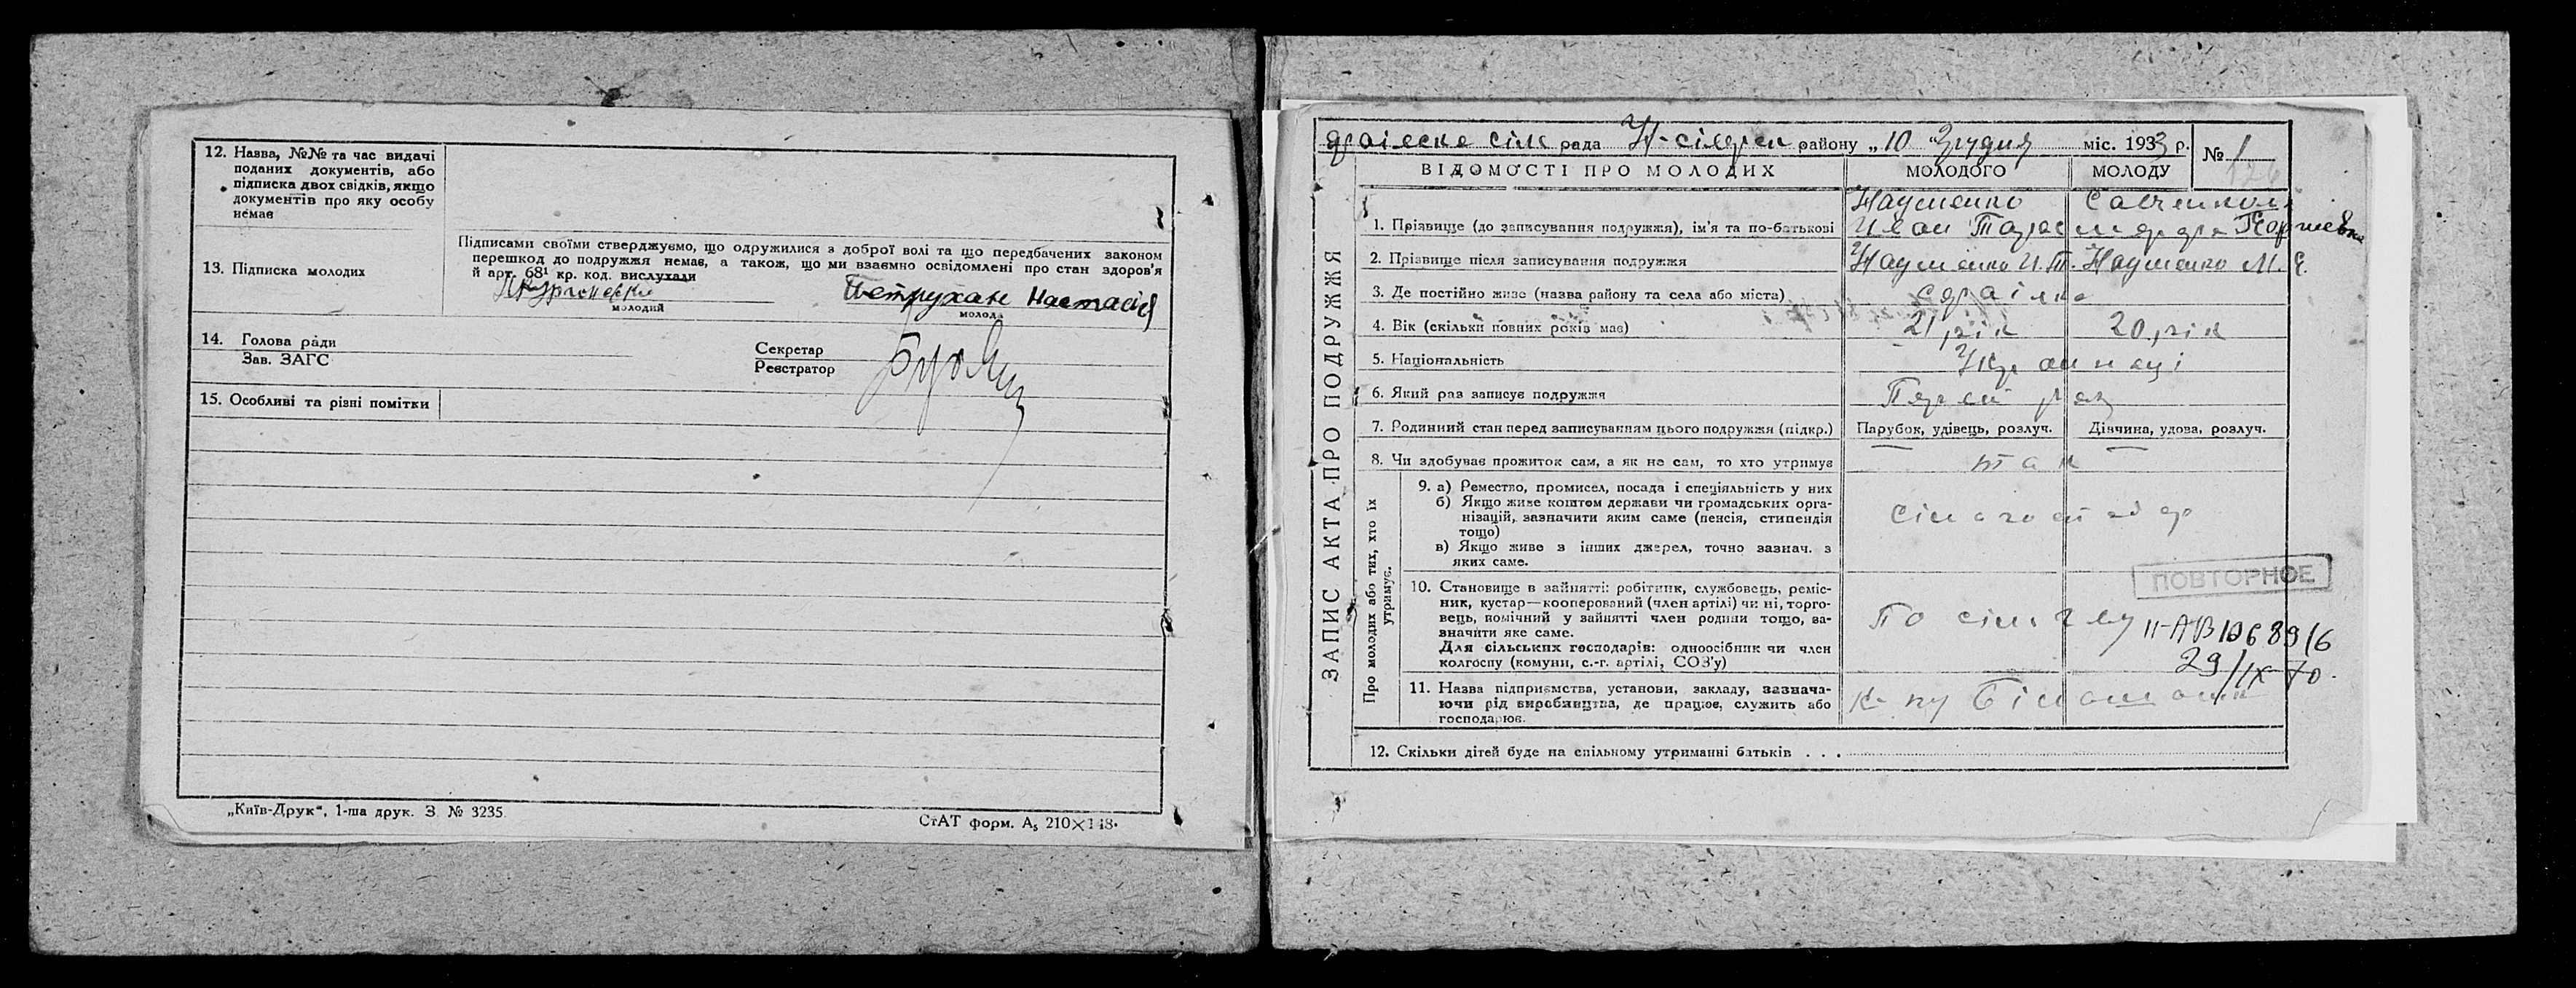 12. Назва, №№ та час видачі
поданих документів, або
підписка двох свідків, якщо
документів про яку особу
немає
13. Підписка молодих
Підписами своїми стверджуємо, що одружилися з доброї волі та що передбачених законом
перешкод до подружжя немає, а також, що ми взаємно освідомлені про стан здоров'я
й арт. 68¹ кр. код. вислухали
Петрухан Настасія
молодий
молода
14. Голова ради
Зав. ЗАГС
Секретар
Реєстратор
15. Особливі та різні помітки
„Київ-Друк", 1-ша друк. З № 3235.
СтАТ форм. А₅ 210×148.
ЗАПИС АКТА ПРО ПОДРУЖЖЯ
сіль рада району „10 Грудня міс. 1933 р.
№ 1
ВІДОМОСТІ ПРО МОЛОДИХ
МОЛОДОГО
МОЛОДУ
1. Прізвище (до записування подружжя), ім'я та по-батькові
Науменко
Иван Тарас
2. Прізвище після записування подружжя
Науменко И.Т.
Науменко М. Є.
3. Де постійно живе (назва району та села або міста)
4. Вік (скільки повних років має)
21 рік
20 рік
5. Національність
Українці
6. Який раз записує подружжя
Перший раз
7. Родинний стан перед записуванням цього подружжя (підкр.)
Парубок, удівець, розлуч.
Дівчина, удова, розлуч.
8. Чи здобуває прожиток сам, а як не сам, то хто утримує
так
Про молодих або тих, хто їх
утримує.
9. а) Ремество, промисел, посада і спеціяльність у них
б) Якщо живе коштом держави чи громадських орга-
нізацій, зазначити яким саме (пенсія, стипендія
тощо)
в) Якщо живе з інших джерел, точно зазнач. з
яких саме.
10. Становище в зайнятті: робітник, службовець, реміс-
ник, кустар—кооперований (член артілі) чи ні, торго-
вець, помічний у зайнятті член родини тощо, за-
значити яке саме.
Для сільських господарів: одноосібник чи член
колгоспу (комуни, с.-г. артілі, СОЗ'у)
ПОВТОРНОЕ
29/IX-70.
11. Назва підприємства, установи, закладу, зазнача-
ючи рід виробництва, де працює, служить або
господарює.
12. Скільки дітей буде на спільному утриманні батьків . . .